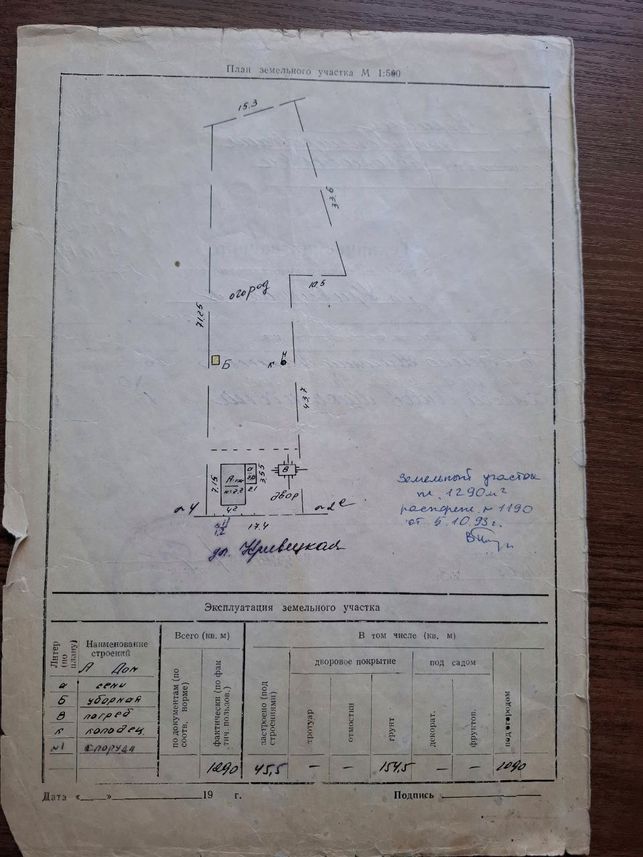 План земельного участка М 1:500
15.3
33.6
10.5
огород
71.25
Б
к
43.7
А жн
h=2.2
а
3.55
2.1
7.15
4.2
В
двор
17.4
ул. Кривецкая
Земельный участок
пл. 1290 м²
распоряж. № 1190
от 5.10.93 г.
Эксплуатация земельного участка
Литер (по плану)
Наименование строений
Всего (кв. м)
В том числе (кв. м)
по документам (по соотв. норме)
фактически (по фактич. пользов.)
застроено (под строениями)
дворовое покрытие
под садом
под огородом
тротуар
отмостки
грунт
декорат.
фруктов.
А Дом
а сени
Б уборная
В погреб
к колодец
№1
1290 45,5 — — 154,5 — — 1090
Дата «____» 19 г. Подпись